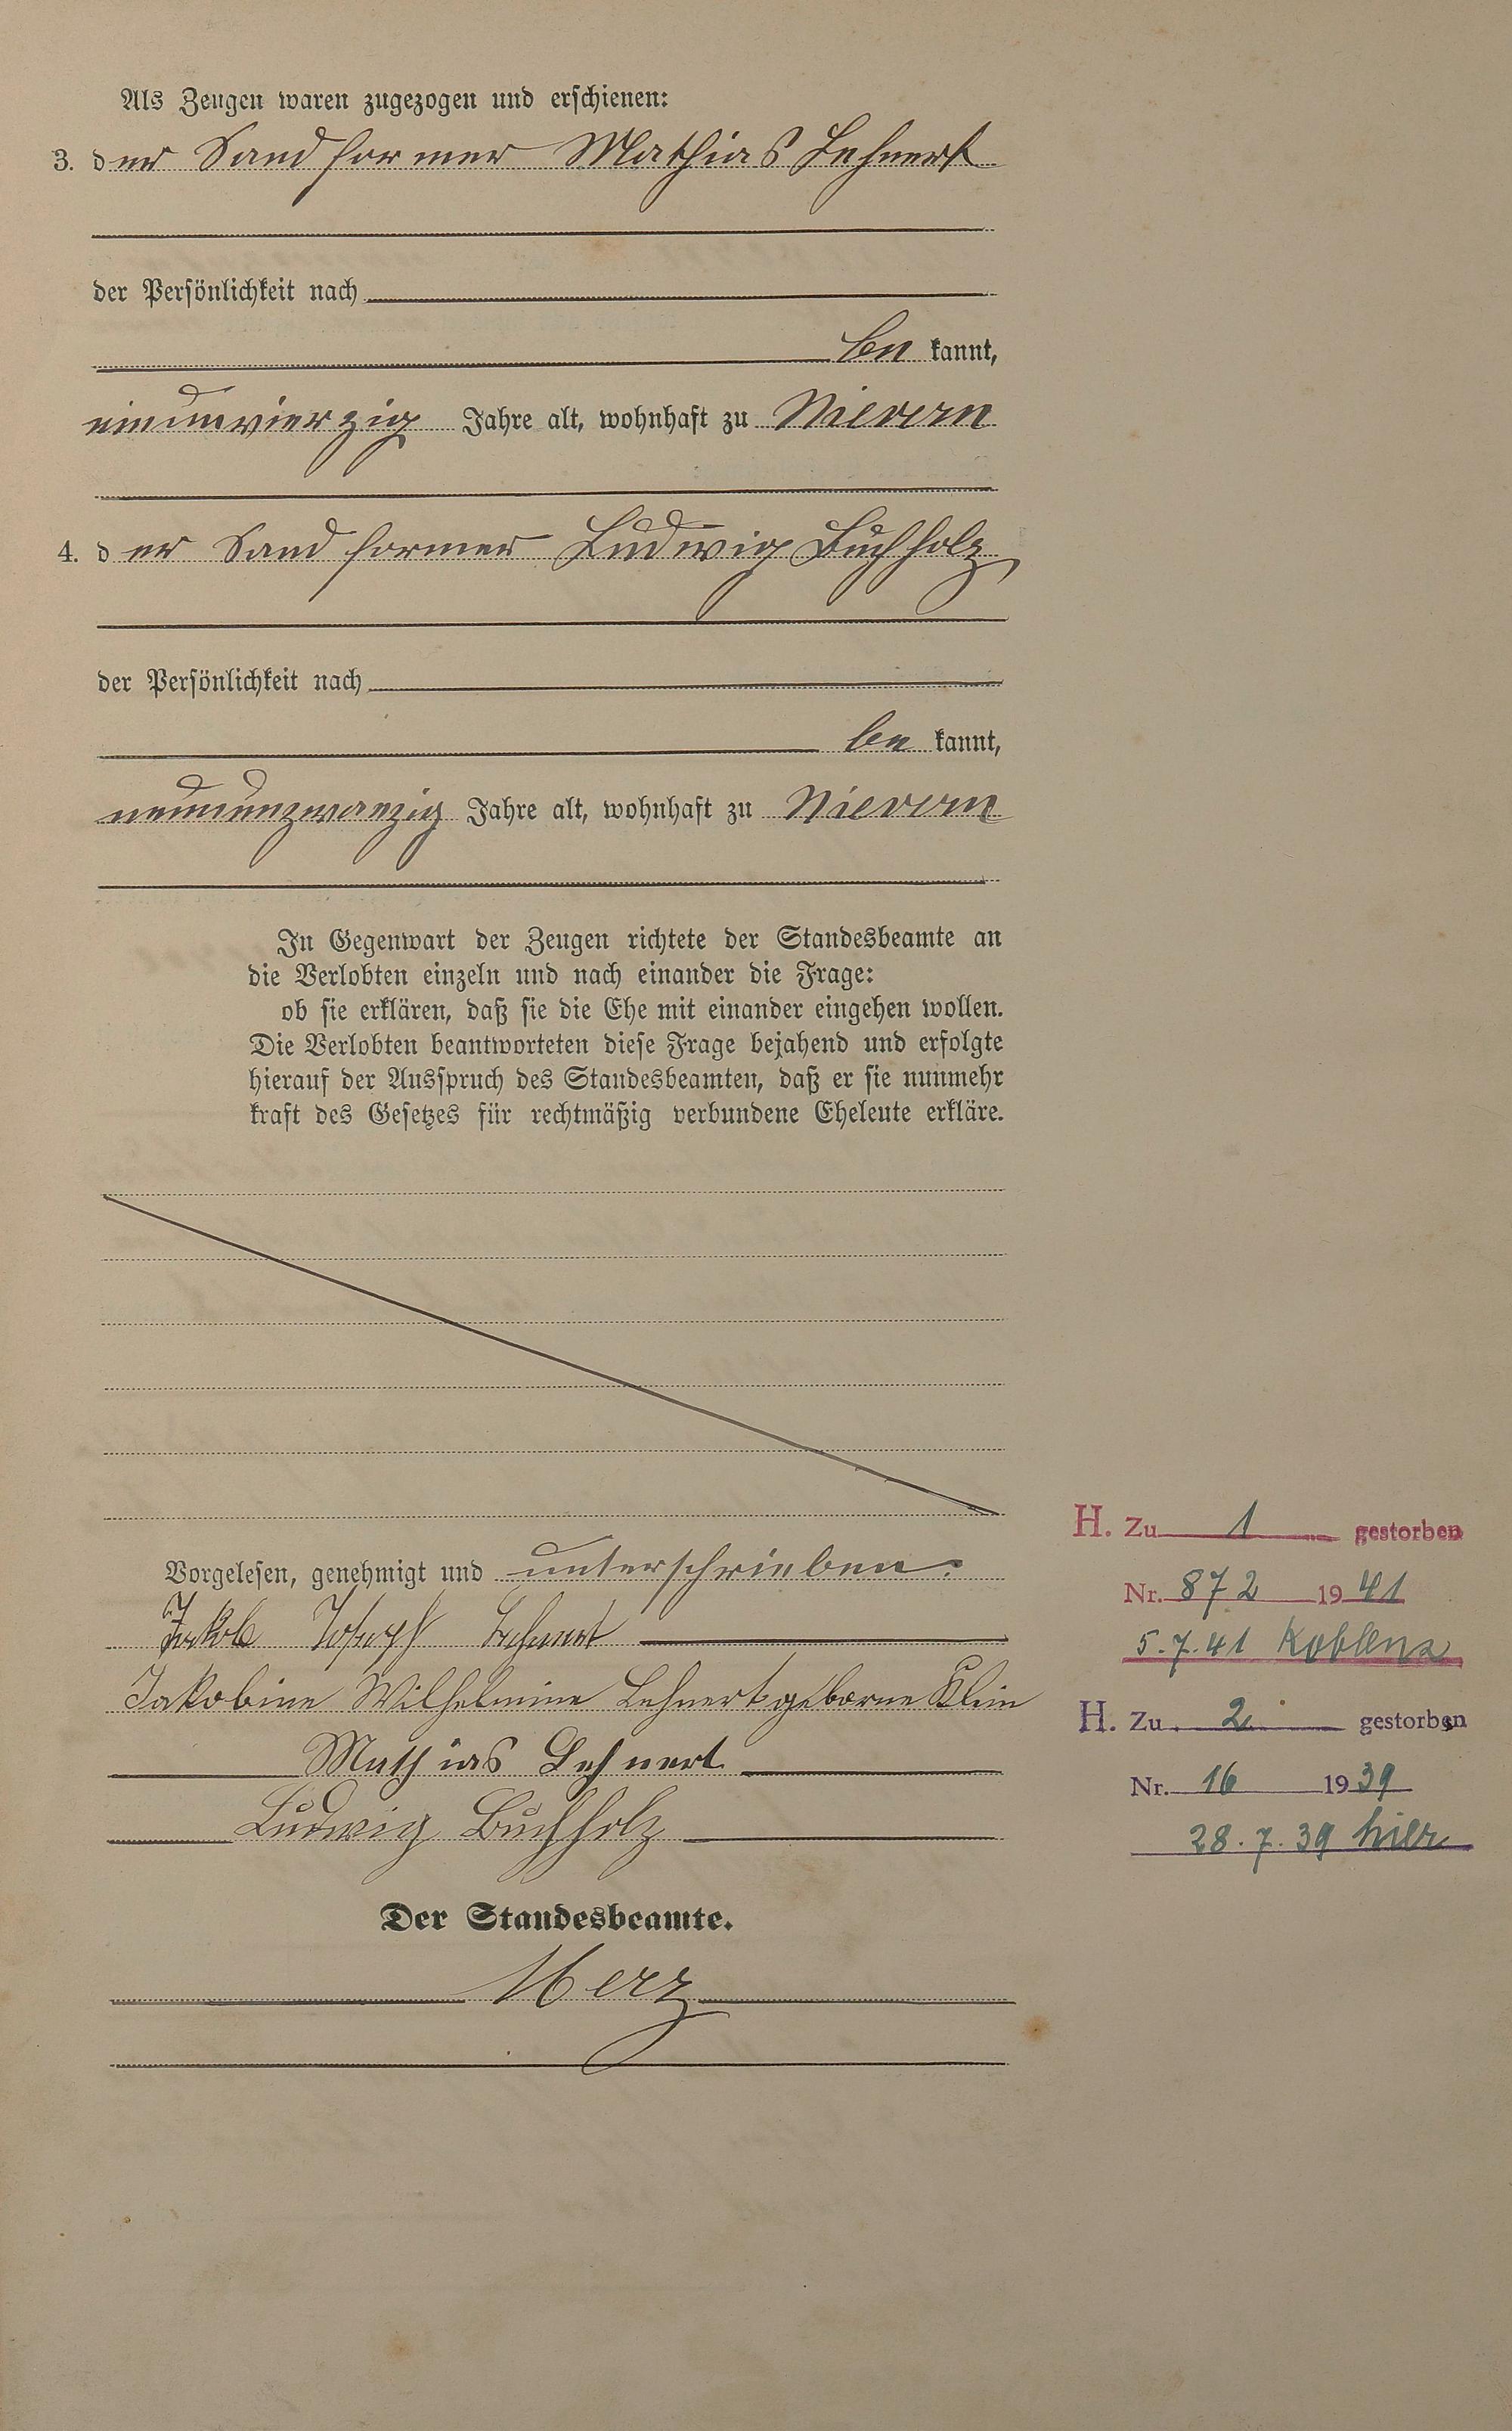 Als Zeugen waren zugezogen und erschienen:
3. der Sandformer Mathias Lehnert
der Persönlichkeit nach
be kannt,
einunvierzig Jahre alt, wohnhaft zu Nievern
4. der Sandformer Ludwig Buchholz
der Persönlichkeit nach
be kannt,
neununzwanzig Jahre alt, wohnhaft zu Nievern
In Gegenwart der Zeugen richtete der Standesbeamte an
die Verlobten einzeln und nach einander die Frage:
ob sie erklären, daß sie die Ehe mit einander eingehen wollen.
Die Verlobten beantworteten diese Frage bejahend und erfolgte
hierauf der Ausspruch des Standesbeamten, daß er sie nunmehr
kraft des Gesetzes für rechtmäßig verbundene Eheleute erkläre.
Vorgelesen, genehmigt und unterschrieben.
Jakob Joseph Lehnert
Jakobine Wilhelmine Lehnert geborne Klein
Mathias Lehnert
Ludwig Buchholz
Der Standesbeamte.
Merz
H. Zu 1 gestorben
Nr. 872 1941
5.7.41 Koblenz
H. Zu 2 gestorben
Nr. 16 1939
28.7.39 hier